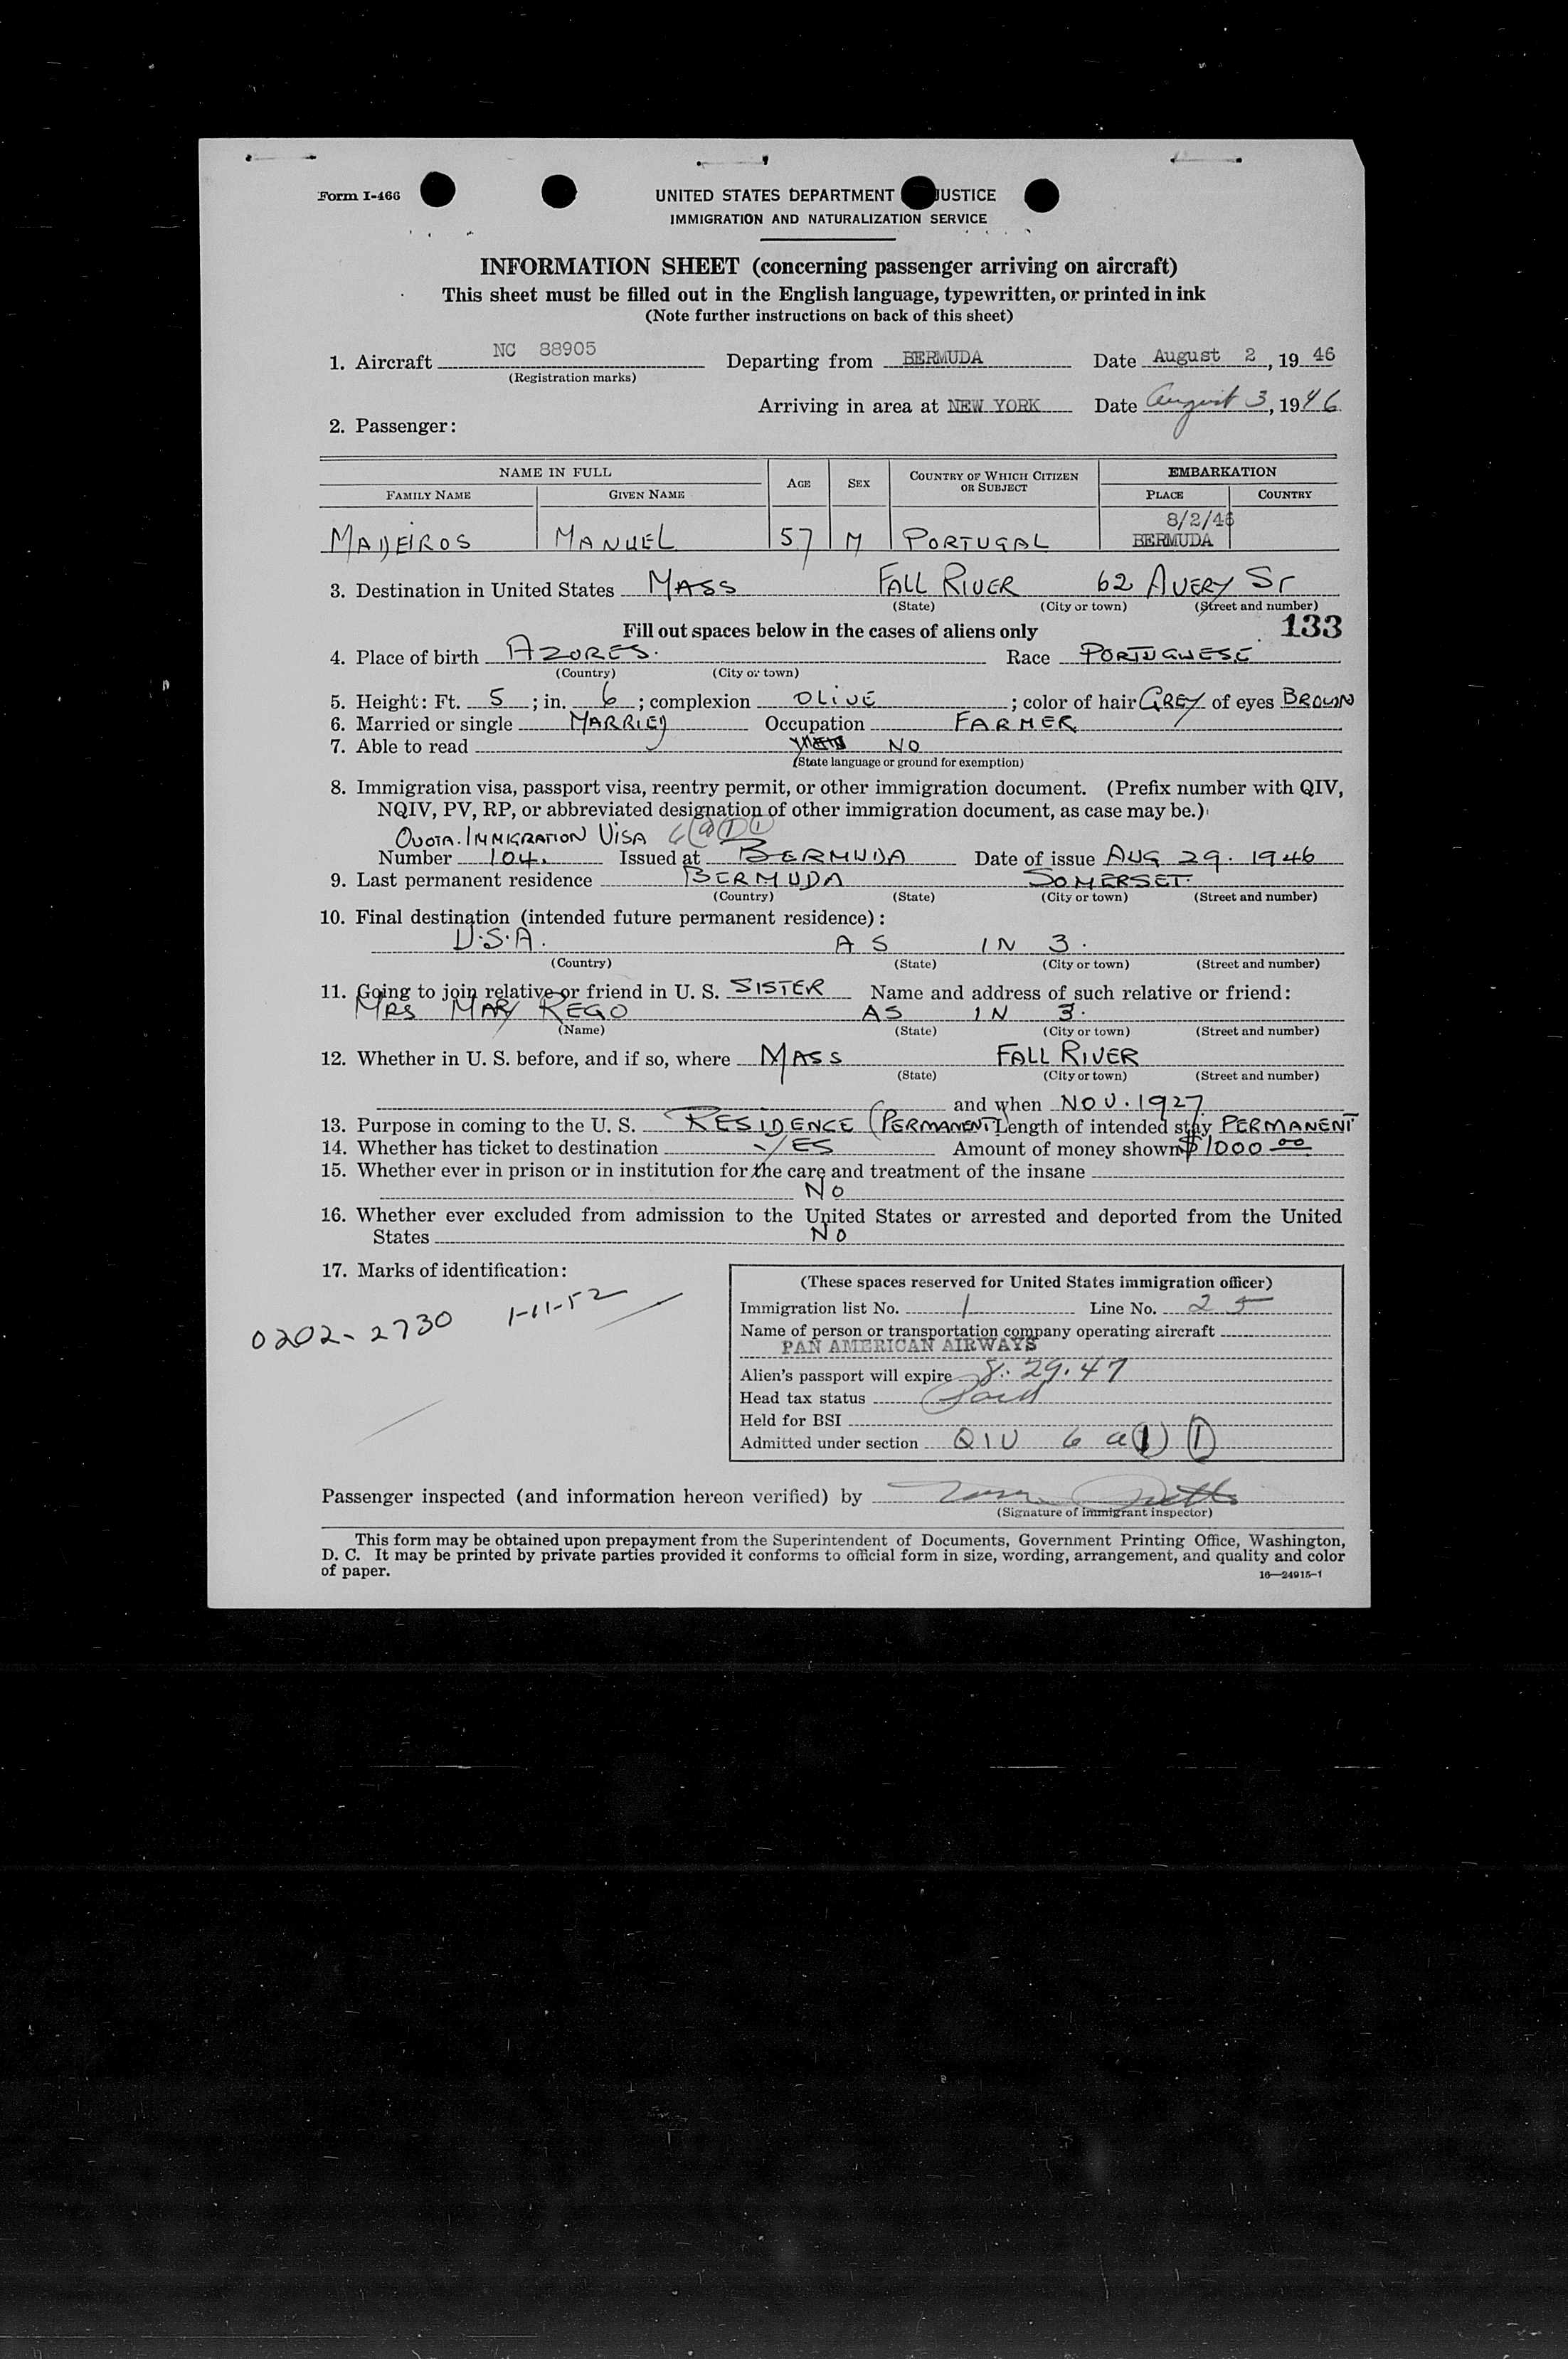 Form I-466
UNITED STATES DEPARTMENT JUSTICE
IMMIGRATION AND NATURALIZATION SERVICE
INFORMATION SHEET (concerning passenger arriving on aircraft)
This sheet must be filled out in the English language, typewritten, or printed in ink
(Note further instructions on back of this sheet)
1. Aircraft NC 88905 Departing from BERMUDA Date August 2, 19 46
(Registration marks)
Arriving in area at NEW YORK Date August 3, 1946
2. Passenger:
NAME IN FULL AGE SEX COUNTRY OF WHICH CITIZEN OR SUBJECT EMBARKATION
FAMILY NAME GIVEN NAME PLACE COUNTRY
8/2/46
MADEIROS MANUEL 57 M PORTUGAL BERMUDA
3. Destination in United States MASS FALL RIVER 62 AVERY ST
(State) (City or town) (Street and number)
Fill out spaces below in the cases of aliens only 133
4. Place of birth AZORES. Race PORTUGUESE
(Country) (City or town)
5. Height: Ft. 5; in. 6; complexion OLIVE; color of hair GREY of eyes BROWN
6. Married or single MARRIED Occupation FARMER
7. Able to read NO
(State language or ground for exemption)
8. Immigration visa, passport visa, reentry permit, or other immigration document. (Prefix number with QIV,
NQIV, PV, RP, or abbreviated designation of other immigration document, as case may be.)
QUOTA. IMMIGRATION VISA
Number 104. Issued at BERMUDA Date of issue AUG 29. 1946
9. Last permanent residence BERMUDA SOMERSET.
(Country) (State) (City or town) (Street and number)
10. Final destination (intended future permanent residence):
U.S.A. AS IN 3.
(Country) (State) (City or town) (Street and number)
11. Going to join relative or friend in U. S. SISTER Name and address of such relative or friend:
MRS MARY REGO AS IN 3.
(Name) (State) (City or town) (Street and number)
12. Whether in U. S. before, and if so, where MASS FALL RIVER
(State) (City or town) (Street and number)
and when NOV. 1927
13. Purpose in coming to the U. S. RESIDENCE (PERMANENT Length of intended stay PERMANENT
14. Whether has ticket to destination YES Amount of money shown $1000 00
15. Whether ever in prison or in institution for the care and treatment of the insane
NO
16. Whether ever excluded from admission to the United States or arrested and deported from the United
States NO
17. Marks of identification:
0202-2730 1-11-52
(These spaces reserved for United States immigration officer)
Immigration list No. 1 Line No. 25
Name of person or transportation company operating aircraft
PAN AMERICAN AIRWAYS
Alien's passport will expire 8.29.47
Head tax status Paid
Held for BSI
Admitted under section QIV 6 a(1) (I)
Passenger inspected (and information hereon verified) by
(Signature of immigrant inspector)
This form may be obtained upon prepayment from the Superintendent of Documents, Government Printing Office, Washington,
D. C. It may be printed by private parties provided it conforms to official form in size, wording, arrangement, and quality and color
of paper. 16—24915-1